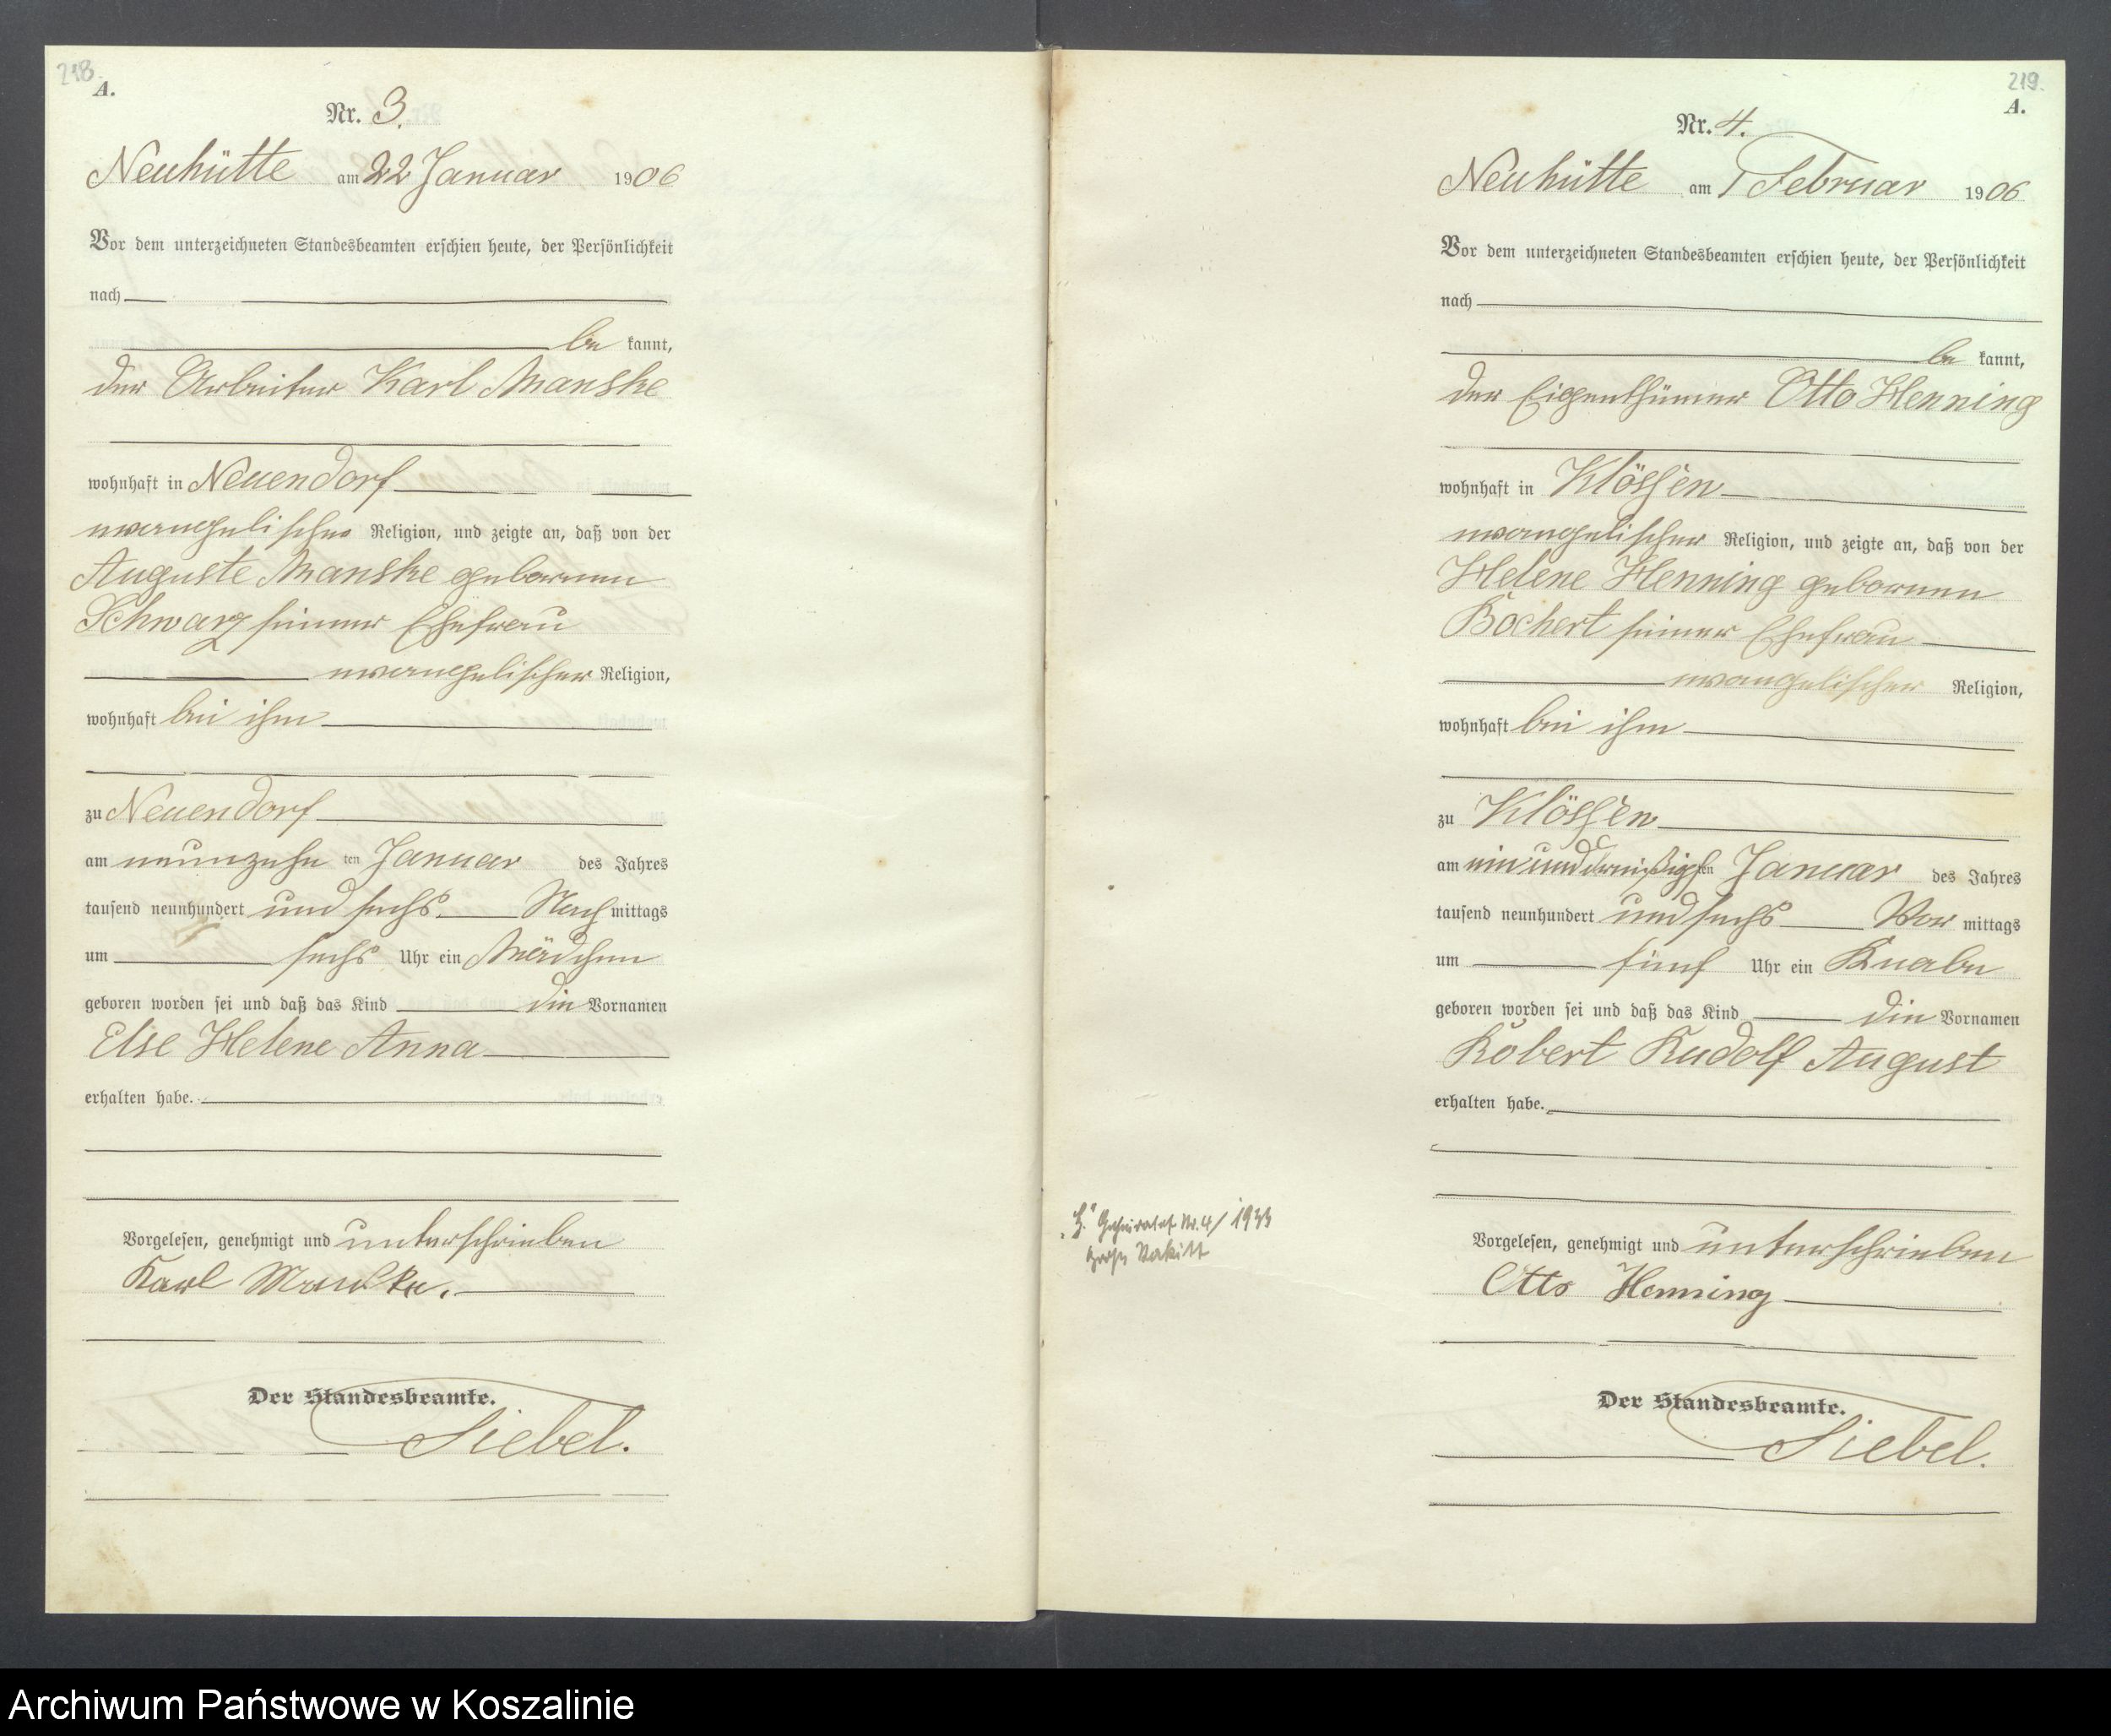 218.
A.
Nr. 3.
Neuhütte am 22 Januar 1906
Vor dem unterzeichneten Standesbeamten erschien heute, der Persönlichkeit
nach
be kannt,
der Arbeiter Karl Manske
wohnhaft in Neuendorf
evangelischer Religion, und zeigte an, daß von der
Auguste Manske geborenen
Schwarz seiner Ehefrau
evangelischer Religion,
wohnhaft bei ihm
zu Neuendorf
am neunzehn ten Januar des Jahres
tausend neunhundert und sechs Nach mittags
um sechs Uhr ein Mädchen
geboren worden sei und daß das Kind die Vornamen
Else Helene Anna
erhalten habe.
Vorgelesen, genehmigt und unterschrieben
Karl Manske.
Der Standesbeamte.
Siebel.
219.
A.
Nr. 4.
Neuhütte am 1 Februar 1906
Vor dem unterzeichneten Standesbeamten erschien heute, der Persönlichkeit
nach
be kannt,
der Eigenthümer Otto Henning
wohnhaft in Klössen
evangelischer Religion, und zeigte an, daß von der
Helene Henning geborenen
Bochert seiner Ehefrau
evangelischer Religion,
wohnhaft bei ihm
zu Klössen
am ein und dreißigsten Januar des Jahres
tausend neunhundert und sechs Vor mittags
um fünf Uhr ein Knabe
geboren worden sei und daß das Kind die Vornamen
Robert Rudolf August
erhalten habe.
Vorgelesen, genehmigt und unterschrieben
Otto Henning
Der Standesbeamte.
Siebel.
Geheiratet Nr. 4/1933
Archiwum Państwowe w Koszalinie